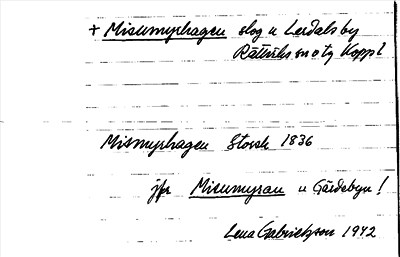 + Misumyrhagen slog u Lerdalsby
Rättviks sn o tg Koppl
Mismyrhagen Storsk 1836
jfr Misumyran u Gärdebyn!
Lena Gabrielsson 1942